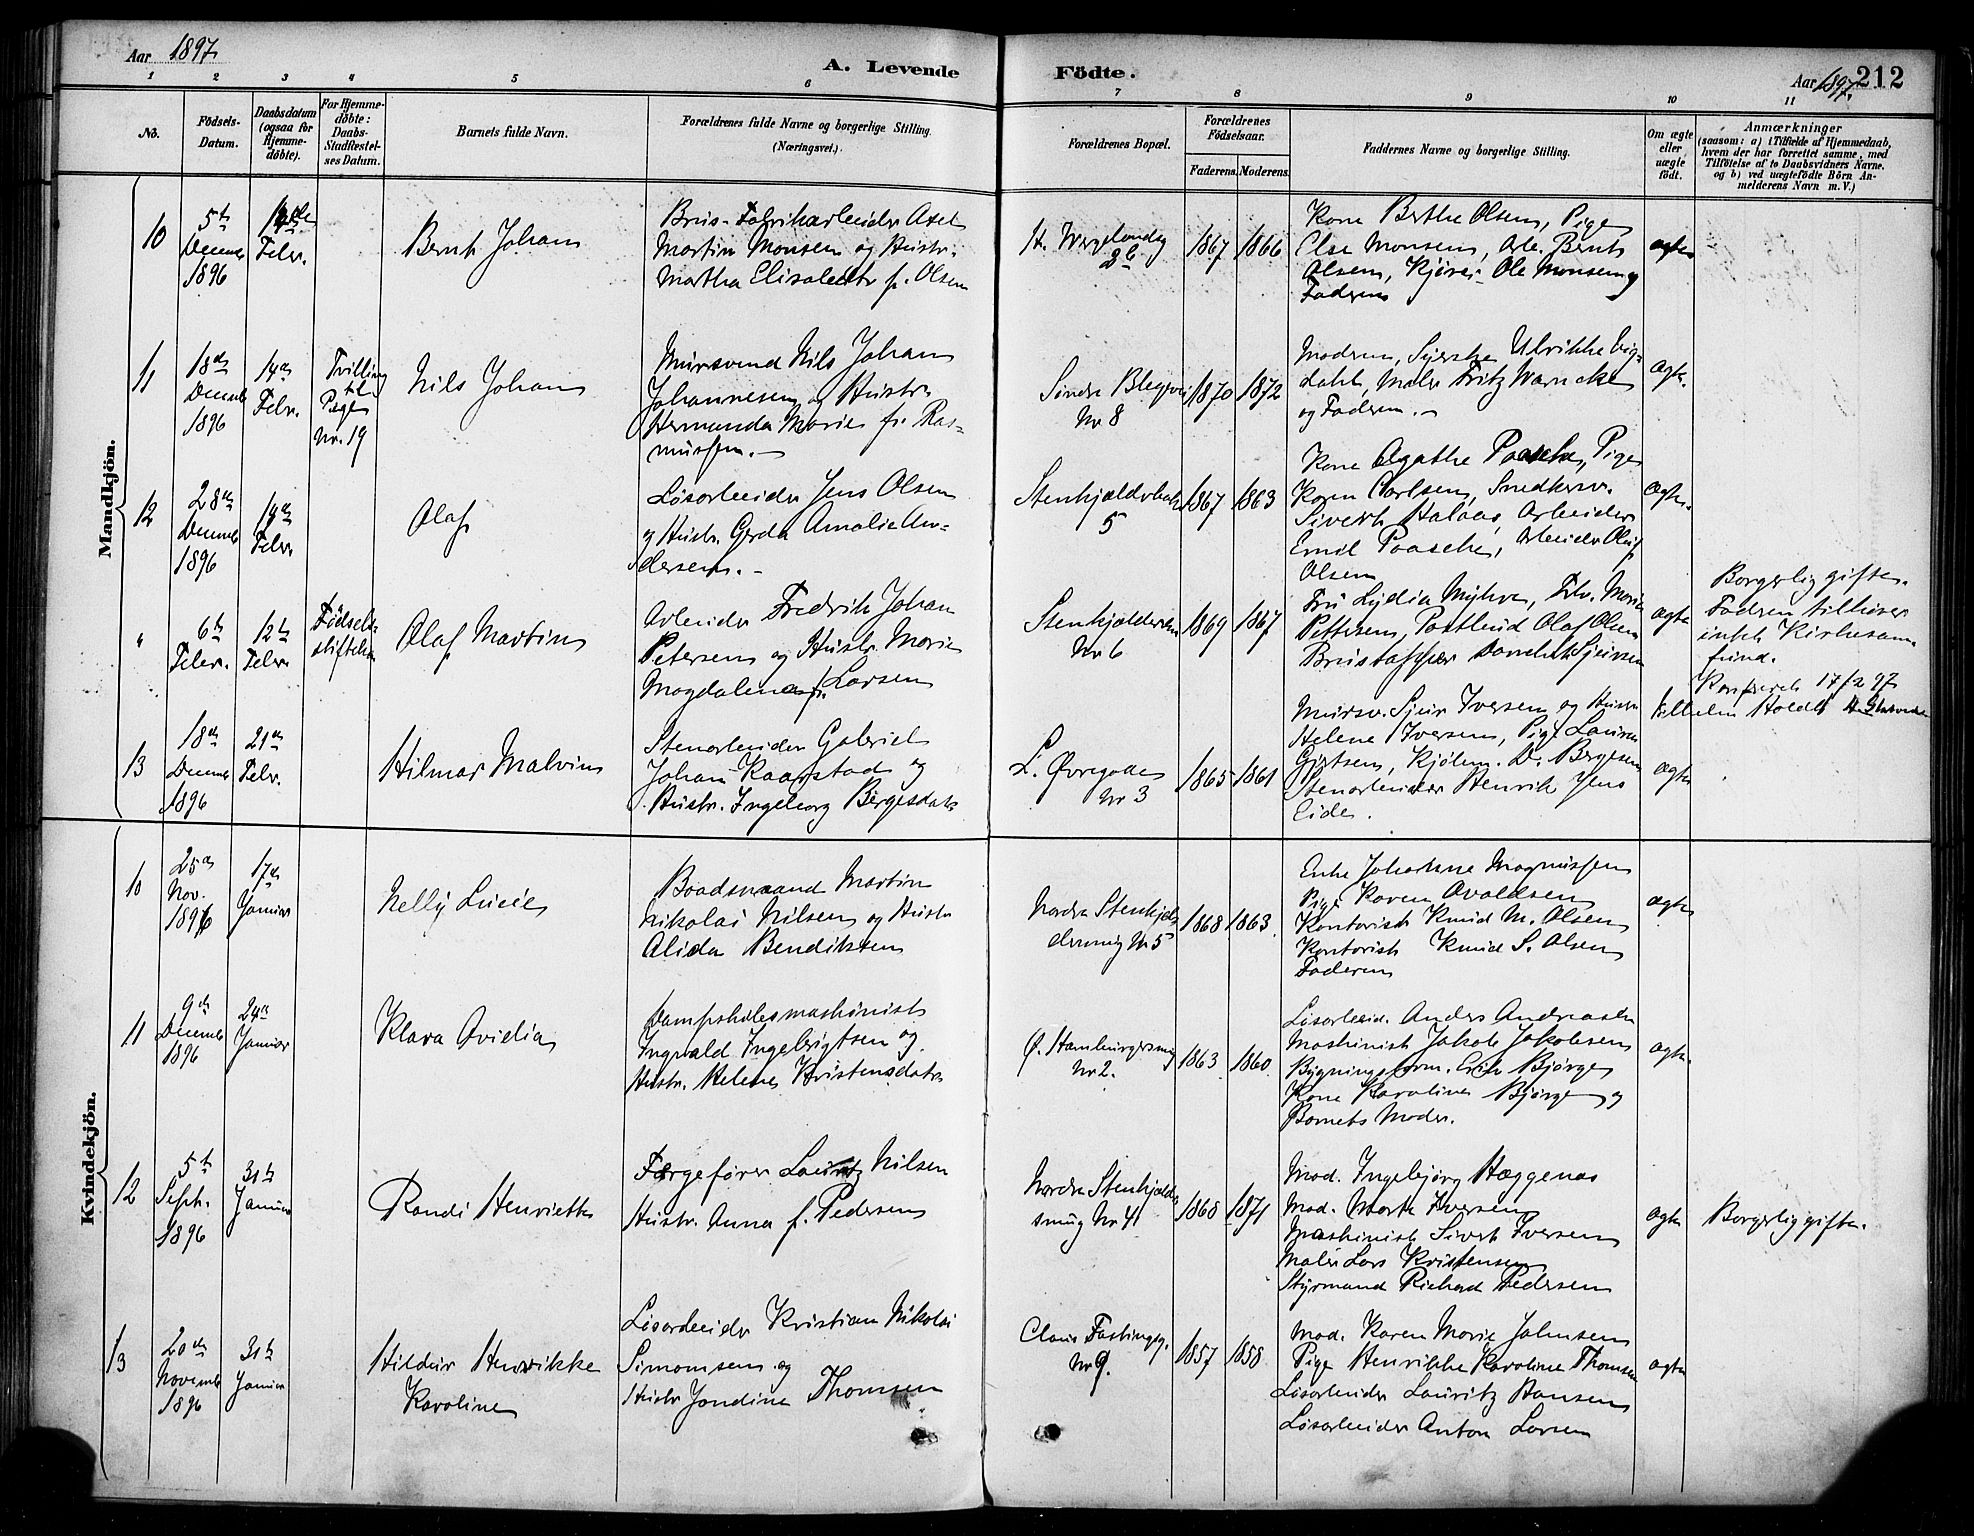 Aar 1897
A. Levende
Födte.
Aar 1897.
212
1 2 3 4 5 6 7 8 9 10 11
No.
Födsels-
Datum.
Daabsdatum
(ogsaa for
Hjemme-
döbte).
For Hjemme-
döbte:
Daabs-
Stadfæstel-
ses Datum.
Barnets fulde Navn.
Forældrenes fulde Navne og borgerlige Stilling.
(Næringsvei.)
Forældrenes Bopæl.
Forældrenes
Födselsaar.
Faderens. Moderens.
Faddernes Navne og borgerlige Stilling.
Om ægte
eller
uægte
födt.
Anmærkninger
(saasom: a) i Tilfælde af Hjemmedaab,
hvem der har forrettet samme, med
Tilföielse af to Daabsvidners Navne.
og b) ved uægtefödte Börn An-
melderens Navn m. V.)
Mandkjön.
10
5te
Decemb
1896
14de
Febr.
Bernt Johan
Brus-Fabrikarbeider Axel
Martin Monsen og Hustr.
Martha Elisabeth f. Olsen
H. Wergelandsg
1867
1866
Kone Berthe Olsen, Pige
Else Monsen, Arb. Bernt
Olsen, Kjører Ole Monsen og
Faderen
ægte
11
18de
Decemb
1896
14de
Febr.
Tvilling
til
Pige
Nr. 19
Nils Johan
Mursvend Nils Johan
Johannesen og Hustr.
Hermanda Marie f. Ras-
mussen.-
Søndre Blegevei
Nr 8
1870
1872
Moderen, Syerske Ulrikke Vig-
dahl, Maler Fritz Warncke
og Faderen.-
ægte.
12
28de
Decemb
1896
14de
Febr.
Olaf
Løsarbeider Jens Olsen
og Hustr. Gerda Amalie An-
dersen.-
5
1867
1863
Kone Agathe Paasche, Pige
Karen Carlsen, Snedkersv.
Sivert Halaas, Arbeider
Emil Paasche, Arbeider Oluf
Olsen
ægte.
"
6te
Febr.
12te
Febr.
Fødsels-
stiftelsen
Olaf Martin
Arbeider Fredrik Johan
Petersen og Hustr. Marie
Magdalena f. Larsen
Nr 6
1869
1867
Fru Lydia Myhre, Frk. Marie
Pettersen, Postbud Olaf Olsen
ægte
Borgerlig gifte.
Faderen tilhører
intet Kirkesam-
fund.
17/2 97
13
18de
Decemb
1896
21de
Febr.
Hilmar Malvin
Stenarbeider Gabriel
Johan Kaarstad og
Hustr. Ingeborg Børgesdatr
L. Øvregaden
Nr 3
1865
1861
Mursv. Sjur Iversen og Hustru
Helene Iversen, Pige Laurene
Gjertsen, Kjølem. D. Børgesen
Stenarbeider Henrik Jens
Eide.
ægte
Kvindekjön.
10
25de
Nov.
1896
17de
Januar
Nelly Lucie
Baadsmand Martin
Nikolai Nilsen og Hustr
Alida Bendiksen
Nordre Stenkjel-
dersmug Nr 5
1868
1863
Enke Johanne Magnussen
Pige Karen Avaldsen
Kontorist Knud M. Olsen
Kontorist Knud S. Olsen
Faderen
ægte
11
9de
Decemb
1896
24de
Januar
Klara Ovidia
Dampskibsmaskinist
Ingvald Ingebrigtsen og
Hustr. Helene Kristensdatr
Ø. Hamburgersmug
Nr 2.
1863
1860
Løsarbeid. Anders Andreasen
Maskinist Jakob Jakobsen
Bygningsform. Erik Bjørge
Kone Karoline Bjørge og
Barnets Moder.
ægte.
12
5te
Septb.
1896
31te
Januar
Randi Henriette
Færgefører Lauritz Nilsen
Hustr. Anna f. Pedersen
Nordre Stenkjelder-
smug Nr 41
1868
1871
Mad. Ingebjørg Hæggenas
Mad. Marte Iversen
Maskinist Sivert Iversen
Maler Lars Kristensen
Styrmand Richard Pedersen
ægte
Borgerlig gifte.
13
20de
Novemb
1896
31te
Januar
Hildur Henrikke
Karoline
Løsarbeider Kristian Nikolai
Simonsen og
Hustr Jondine Thomsen
Claus Fastingsg.
Nr 9.
1857
1858
Mad. Karen Marie Johnsen
Pige Henrikke Karoline Thomsen
Løsarbeider Lauritz Hansen
Løsarbeider Anton Larsen
ægte